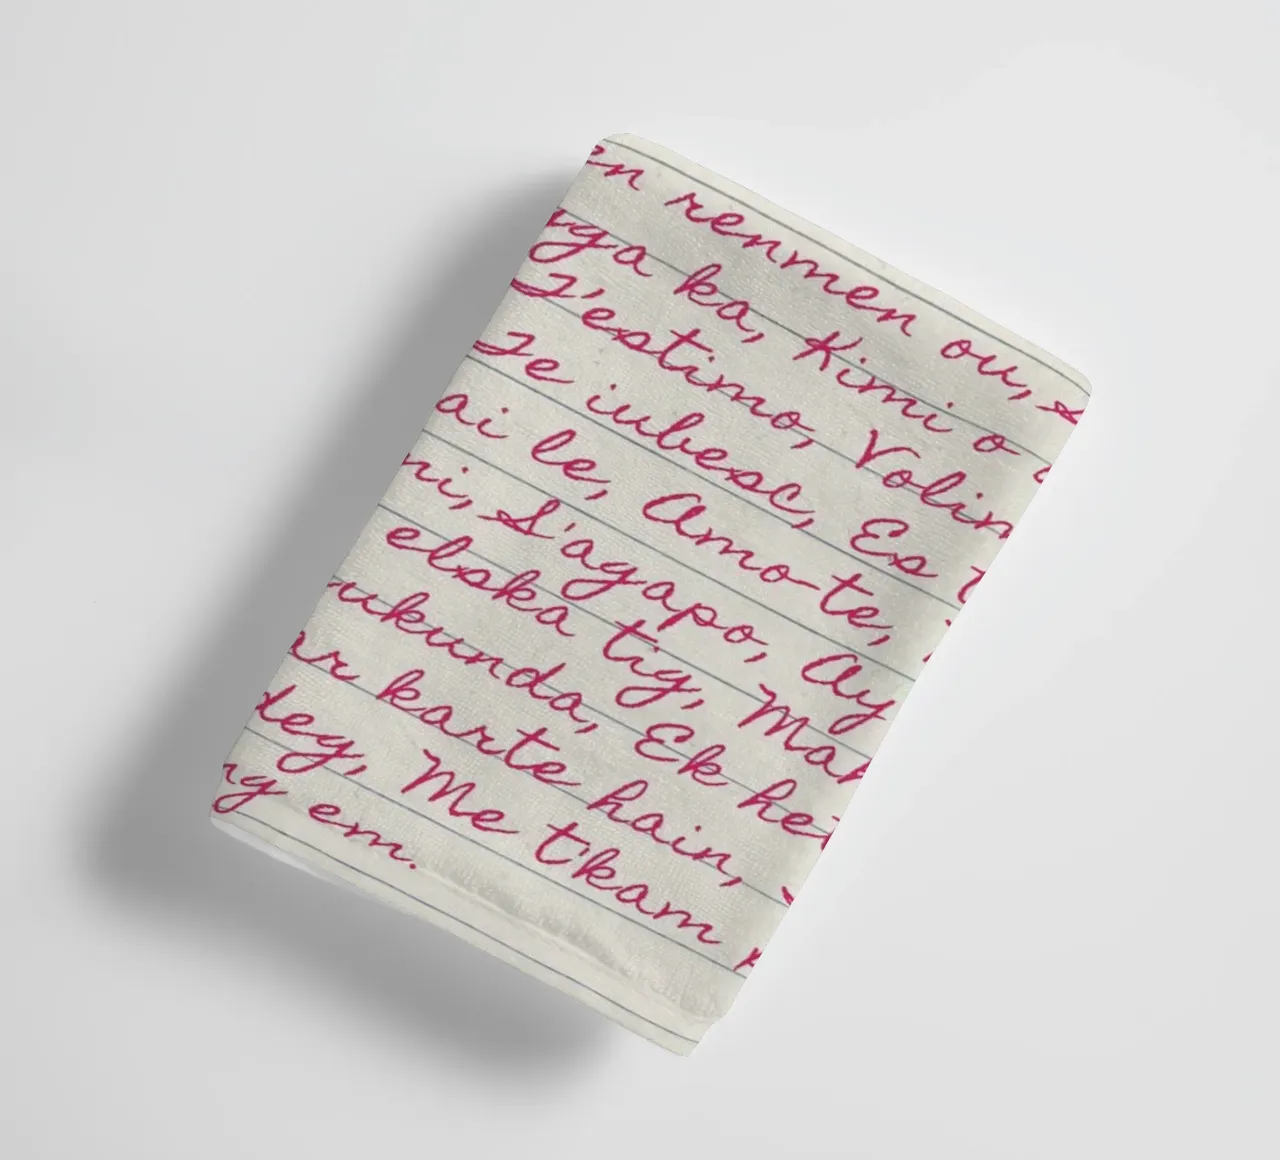 en renmen ou,
ga ka, Kimi o
T'estimo, Volim
Te iubesc, Es t
ai le, Amo-te,
ni, S'agapo, Ay
elska tig, Mah
ukunda, Ek het
ar karte hain,
dey, Me t'kam
ry em.